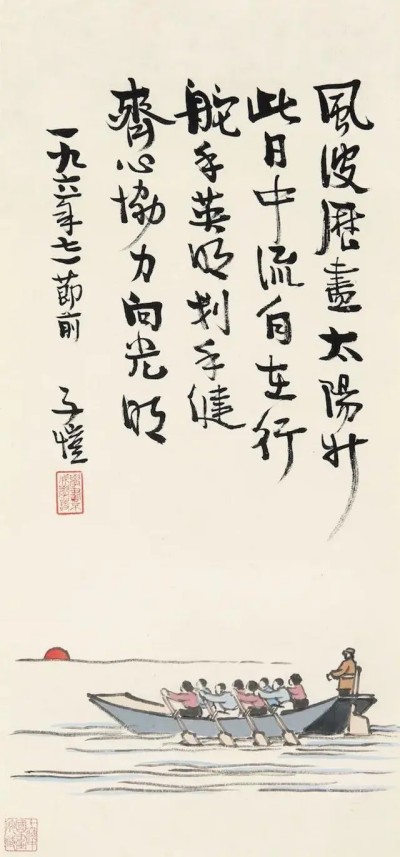 風波歷盡太陽升
此日中流自在行
舵手英明划手健
齊心協力向光明
一九六一年七一節前
子愷